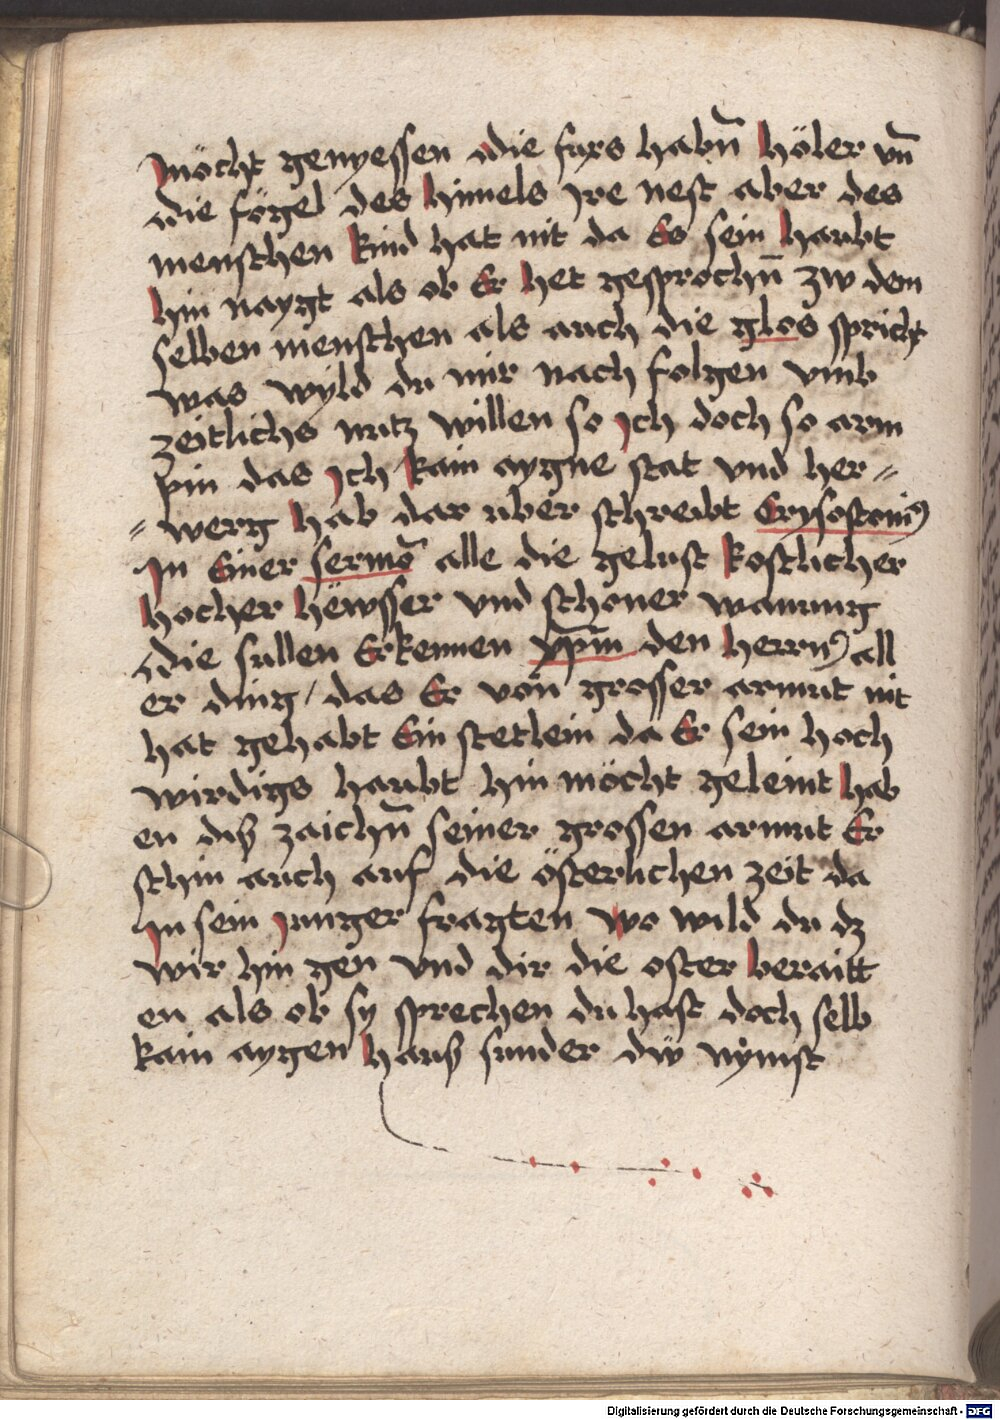 möcht genyessen die füxs habn̄ höler vn̄
die fögel des himels ire nest aber des
menschen kind hat nit da Es sein haubt
hin naygt als ob Er het gesprochn̄ zw dem
selben menschen als auch die glos spricht
was wyld du mir nach folgen vmb
zeitlichs nutz willen so Ich doch so arm
pin das Ich kain aygne stat vnd her=
=werg hab dar uber schreibt Crysostomꝰ
In Einer sermō alle die gelust kostlicher
hocher hëwsser vnd schoner wanung
die sullen Erkennen xp̄m den herrnꝰ all
er ding / das Er von grosser armut nit
hat gehabt Ein stetlein da Er sein hoch
wirdigs haubt hin möcht geleint hab
en diß zaichn̄ seiner grossen armut Er
schin auch auf die österlichen zeit da
In sein Iunger fragten wo wild du dz
wir hin gen vnd dir die oster beraitt
en als ob sy sprechen du hast doch selb
kain aygen hauß sunder dw nymst
Digitalisierung gefördert durch die Deutsche Forschungsgemeinschaft - DFG